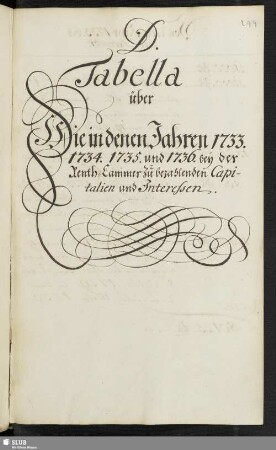 144
D.
Tabella
über
Die in denen Jahren 1733.
1734. 1735. und 1736. bey der
Renth-Cammer zu bezahlenden Capi-
talien und Interessen.
SLUB
Wir führen Wissen.